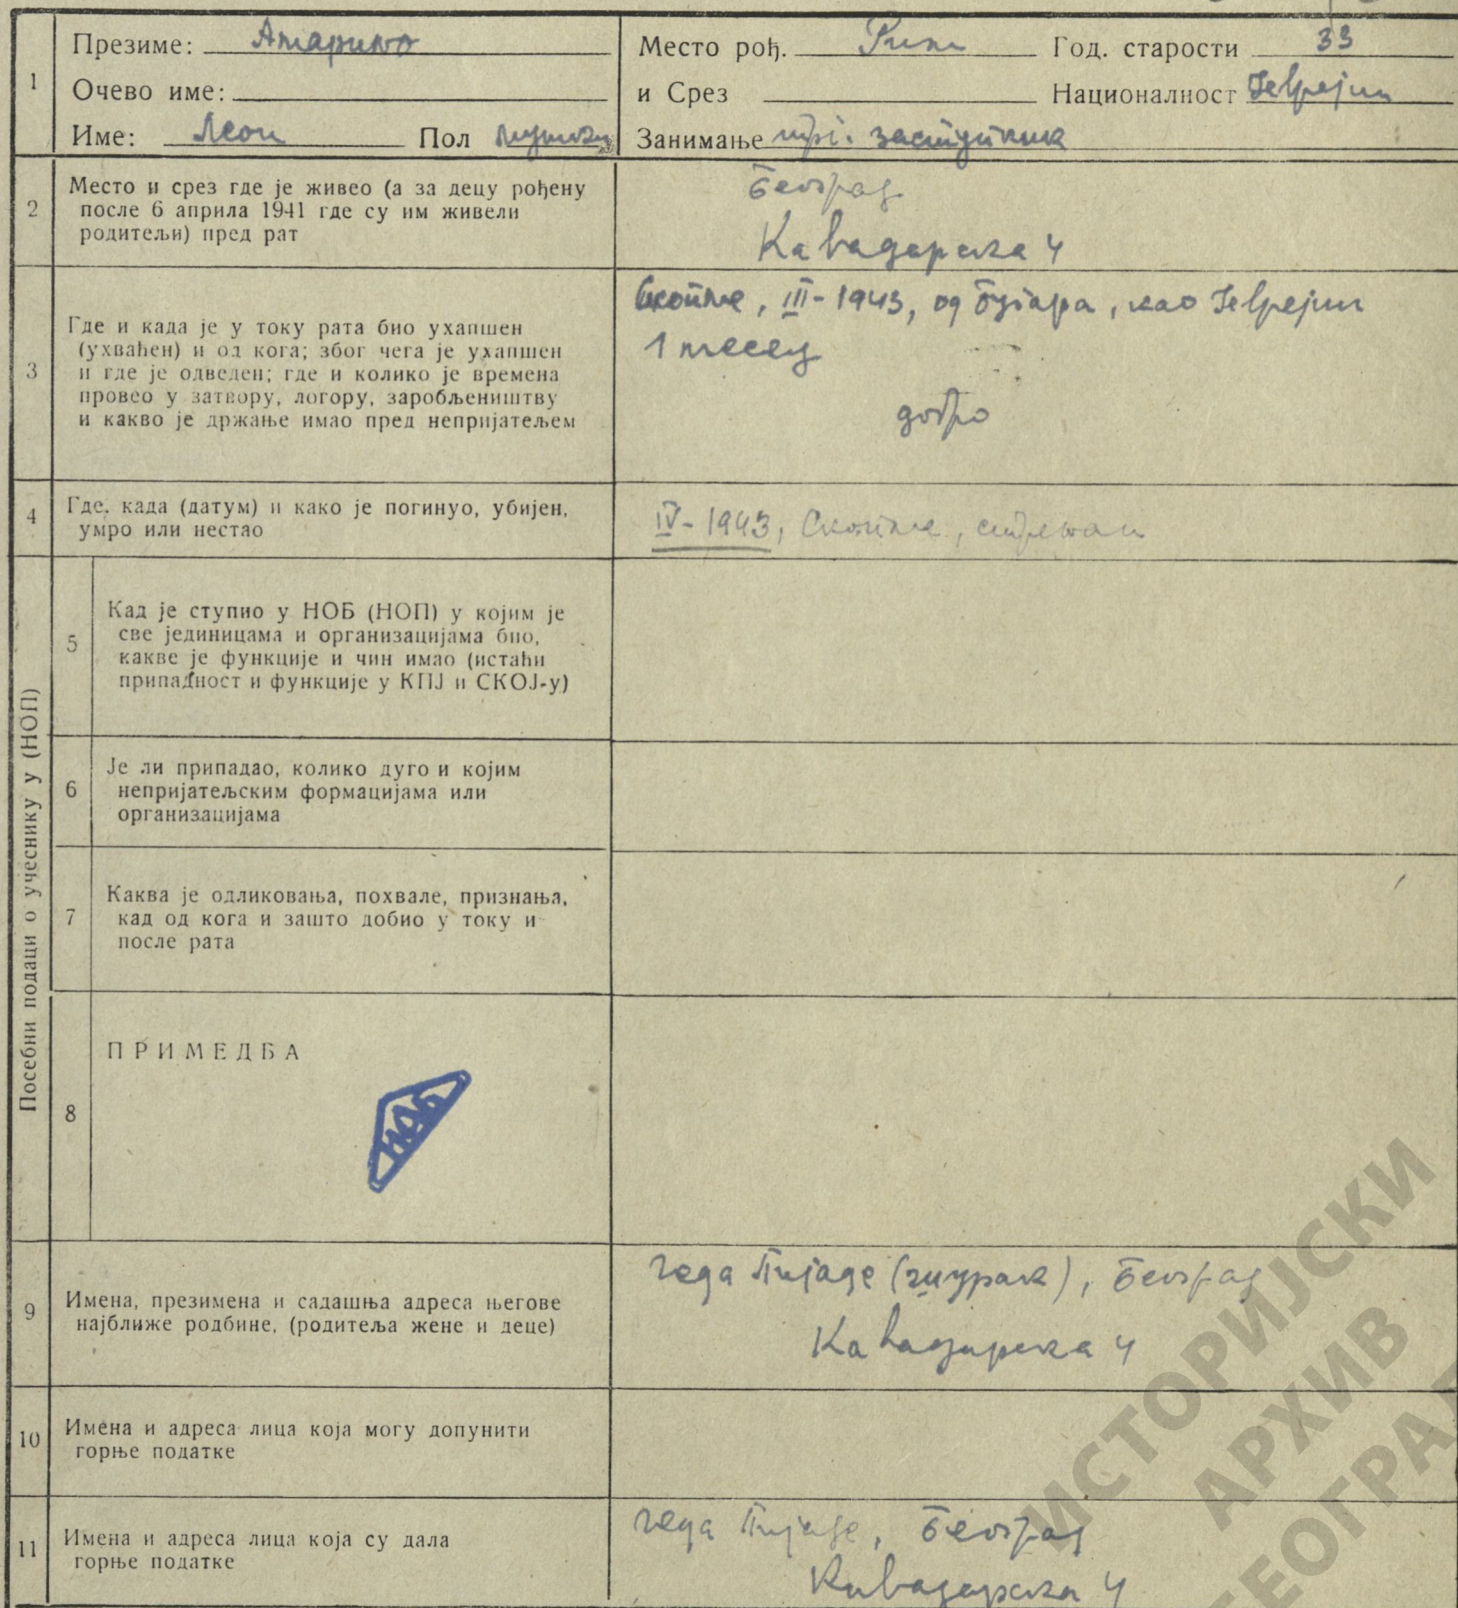 1
Презиме: Атарино
Очево име:
Име: Леон Пол мушки
Место рођ. Рим Год. старости 33
и Срез Националност Јеврејин
Занимање трг. заступник
2
Место и срез где је живео (а за децу рођену
после 6 априла 1941 где су им живели
родитељи) пред рат
Београд
Кавадарска 4
3
Где и када је у току рата био ухапшен
(ухваћен) и од кога; због чега је ухапшен
и где је одведен; где и колико је времена
провео у затвору, логору, заробљеништву
и какво је држање имао пред непријатељем
Скопље, III-1943, од Бугара, као Јеврејин
1 месец
добро
4
Где, када (датум) и како је погинуо, убијен,
умро или нестао
IV-1943, Скопље, стрељан
Посебни подаци о учеснику у (НОП)
5
Кад је ступио у НОБ (НОП) у којим је
све јединицама и организацијама био,
какве је функције и чин имао (истаћи
припадност и функције у КПЈ и СКОЈ-у)
6
Је ли припадао, колико дуго и којим
непријатељским формацијама или
организацијама
7
Каква је одликовања, похвале, признања,
кад од кога и зашто добио у току и
после рата
8
ПРИМЕДБА
НОБ
9
Имена, презимена и садашња адреса његове
најближе родбине, (родитеља жене и деце)
Пијаде Београд
Кавадарска 4
10
Имена и адреса лица која могу допунити
горње податке
11
Имена и адреса лица која су дала
горње податке
Пијаде, Београд
Кавадарска 4
ИСТОРИЈСКИ
АРХИВ
БЕОГРАД